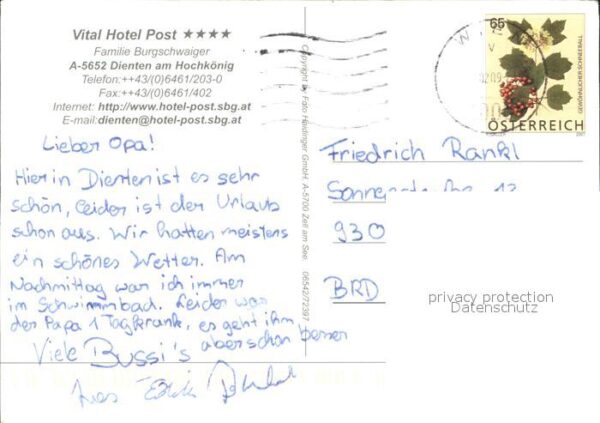 Vital Hotel Post ★★★★
Familie Burgschwaiger
A-5652 Dienten am Hochkönig
Telefon:++43/(0)6461/203-0
Fax:++43/(0)6461/402
Internet: http://www.hotel-post.sbg.at
E-mail:dienten@hotel-post.sbg.at
Lieber Opa!
Hier in Dienten ist es sehr
schön, leider ist der Urlaub
schon aus. Wir hatten meistens
ein schönes Wetter. Am
Nachmittag war ich immer
im Schwimmbad. Leider war
der Papa 1 Tag krank, es geht ihm
aber schon besser
Viele Bussi's
Copyright by Foto Haidinger GmbH, A-5700 Zell am See, 06542/72397
65
GEWÖHNLICHER SCHNEEBALL
ÖSTERREICH
Friedrich Rankl
930
BRD
privacy protection
Datenschutz